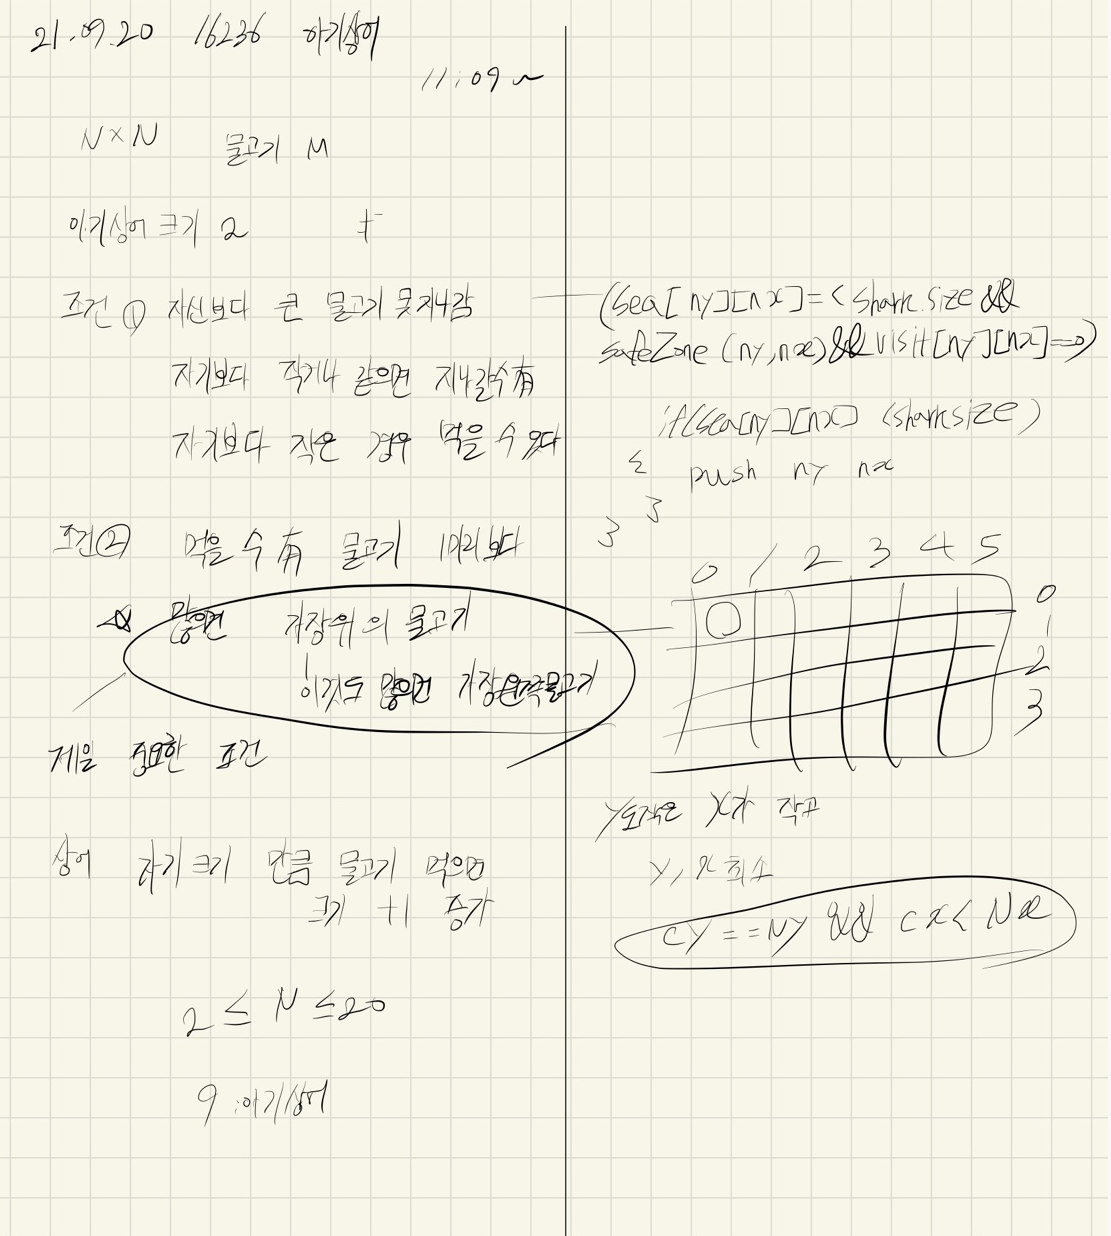 21.09.20 16236 아기상어
11:09 ~
N×N 물고기 M
아기상어 크기 2
조건 ① 자신보다 큰 물고기 못지나감
자기보다 작거나 같으면 지나갈수有
자기보다 작은 경우 먹을 수 있다
조건② 먹을 수 有 물고기 1마리보다
☆ 많으면 가장위의 물고기
이것도 많으면 가장왼쪽물고기
제일 중요한 조건
상어 자기 크기 만큼 물고기 먹으면
크기 +1 증가
2 ≤ N ≤20
9 :아기상어
(Sea[ny][nx]=< shark.size &&
safeZone (ny,nx)&&visit[ny][nx]==0)
if(sea[ny][nx] <sharksize)
{ push ny nx
}
}
0 1 2 3 4 5
0
1
2
3
Y도작은 X가 작고
Y, X 최소
cY==NY && cx< Nx